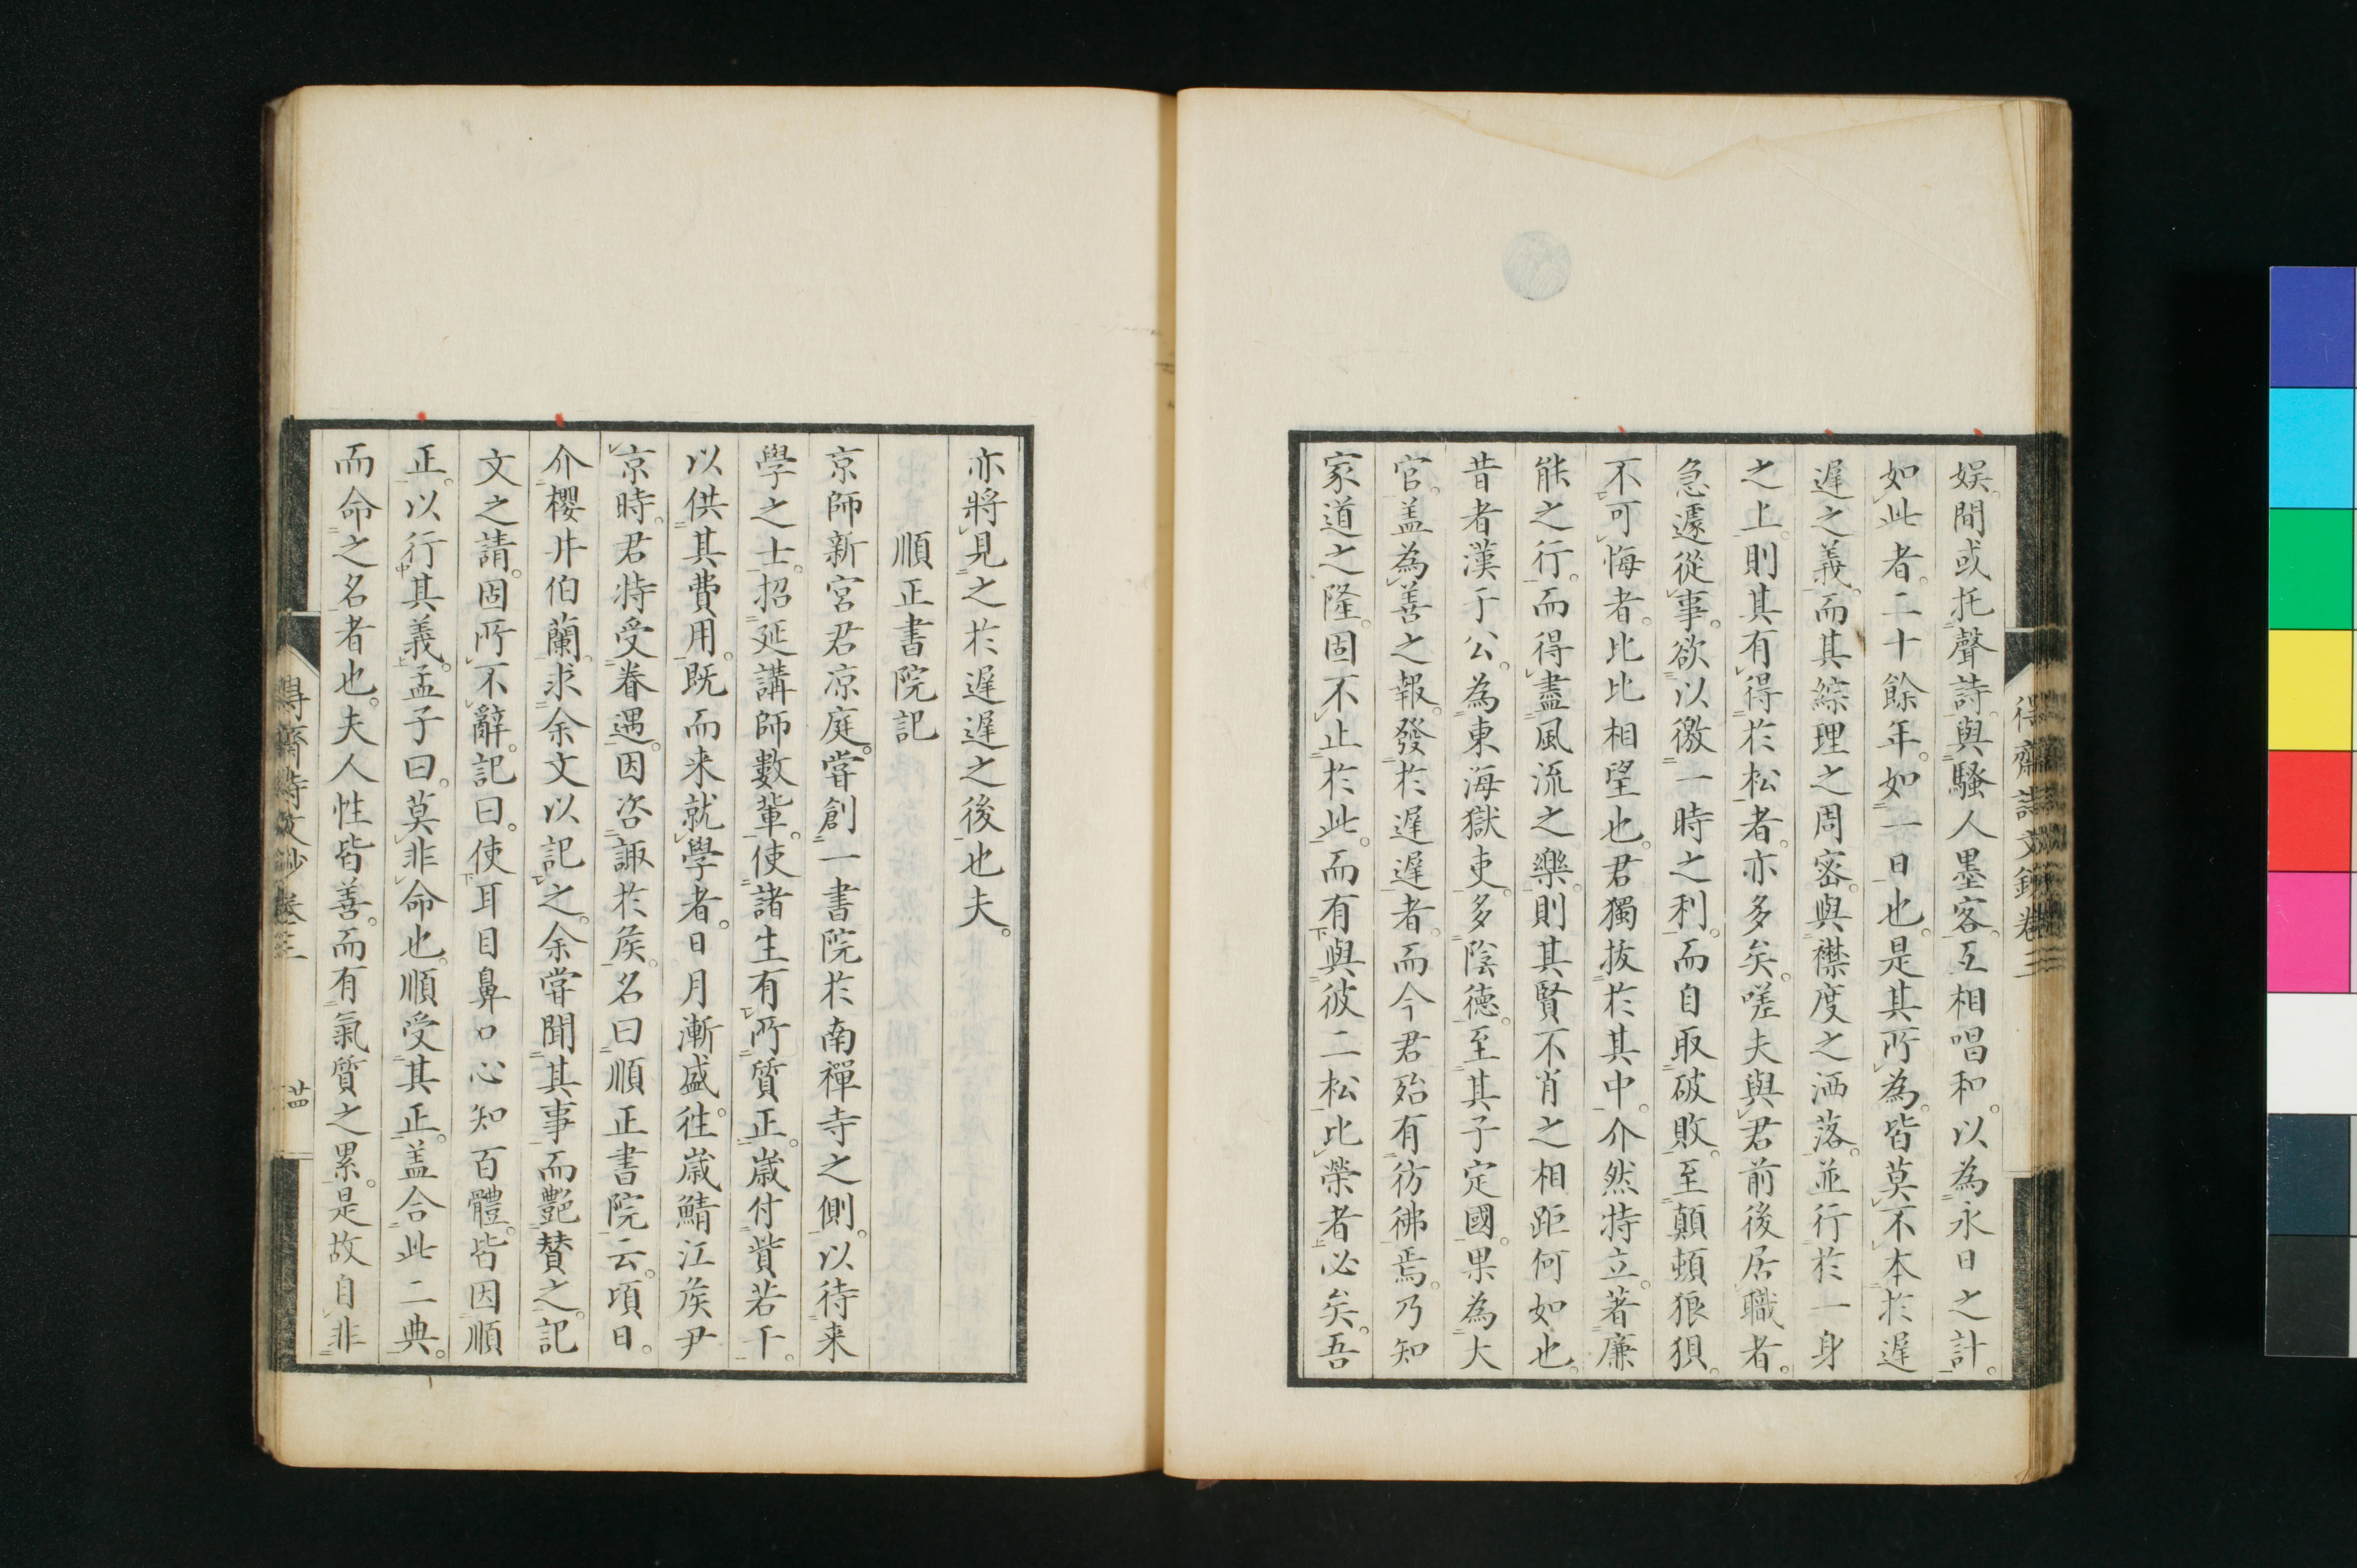 得齋詩文鈔卷三
娱間或托聲詩與騷人墨客互相唱和。以為永日之計。
如此者。二十餘年。如一日也。是其所為。皆莫不本於遲
遲之義。而其綜理之周密。與襟度之洒落。並行於一身
之上。則其有得於松者。亦多矣。嗟夫與君前後居職者。
急遽從事。欲以徼一時之利。而自取破敗。至顛頓狼狽。
不可悔者。比比相望也。君獨拔於其中。介然特立。著廉
能之行。而得盡風流之樂。則其賢不肖之相距何如也。
昔者漢于公。為東海獄吏。多陰德。至其子定國。果為大
官。盖為善之報。發於遲遲者。而今君殆有彷彿焉。乃知
家道之隆。固不止於此。而有與彼二松比榮者必矣。吾
亦將見之於遲遲之後也夫。
順正書院記
京師新宮君凉庭。嘗創一書院於南禪寺之側。以待来
學之士。招延講師數輩。使諸生有所質正。歳付貲若干。
以供其費用。既而来就學者。日月漸盛。往歳鯖江矦尹
京時。君特受眷遇。因咨諏於矦。名曰順正書院云。項日。
介櫻井伯蘭。求余文以記之。余嘗聞其事而艷賛之。記
文之請。固所不辭。記曰。使耳目鼻口心知百體。皆因順
正。以行其義。孟子曰。莫非命也。順受其正。盖合此二典。
而命之名者也。夫人性皆善。而有氣質之累。是故自非
得齋詩文鈔卷三
廿四